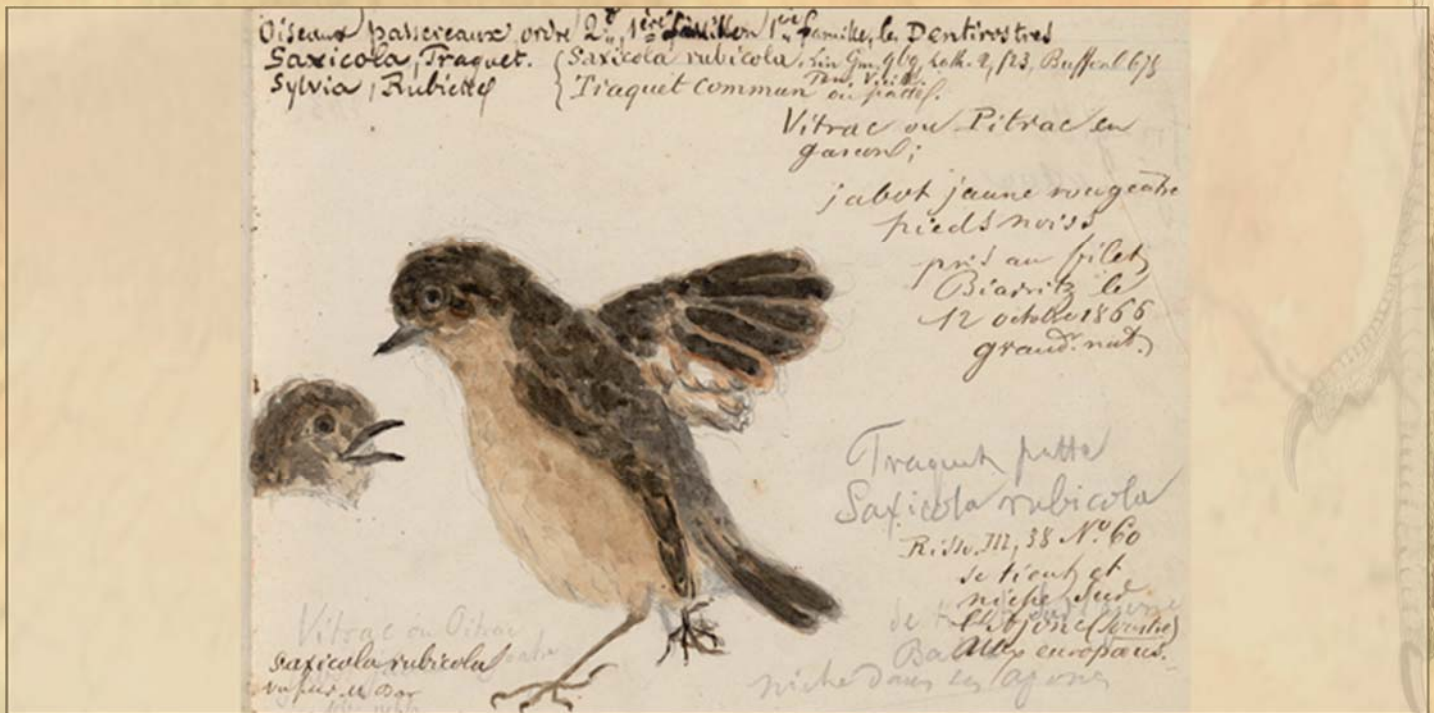 Oiseaux passereaux ordre 2e, 1ère 1ère famille, les Dentirostres
Saxicola, Traquet. { Saxicola rubicola. Lin Gm. Lath. 2, 523, Buff
Sylvia, Rubiette { Traquet commun ou pattes.
Vitrac ou Pitrac en
gascon;
jabot jaune rougeâtre
pieds noirs
pris au filet
Biarritz le
12 octobre 1866
grand. nat.
Traquet patte
Saxicola rubicola
Risso. III, 38 No. 60
se tient et
niche sur
l'ajonc
europæus.
niche dans les ajoncs
Vitrac ou Pitrac
Saxicola rubicola